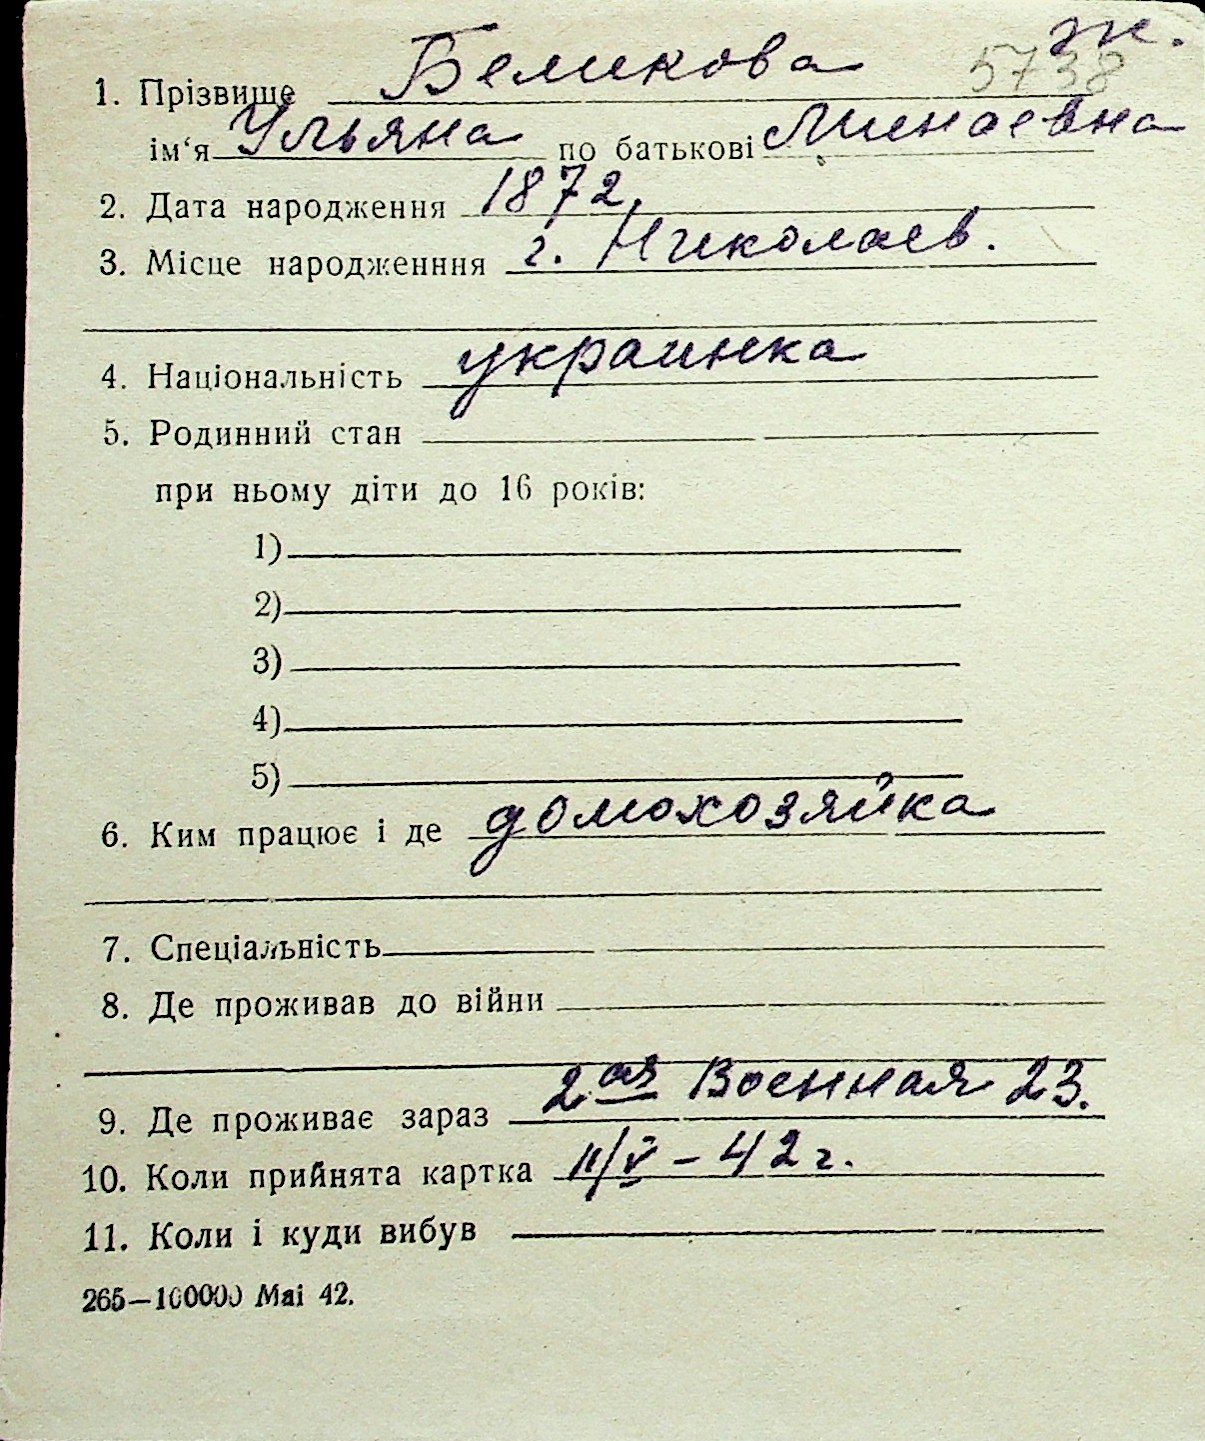 ж.
5738
1. Прізвище Беликова
ім'я Ульяна по батькові Минаевна
2. Дата народження 1872.
3. Місце народженння г. Николаев.
4. Національність украинка
5. Родинний стан
при ньому діти до 16 років:
1)
2)
3)
4)
5)
6. Ким працює і де домохозяйка
7. Спеціальність
8. Де проживав до війни
9. Де проживає зараз 2ая Военная 23.
10. Коли прийнята картка 11/V – 42 г.
11. Коли і куди вибув
265—100000 Mai 42.